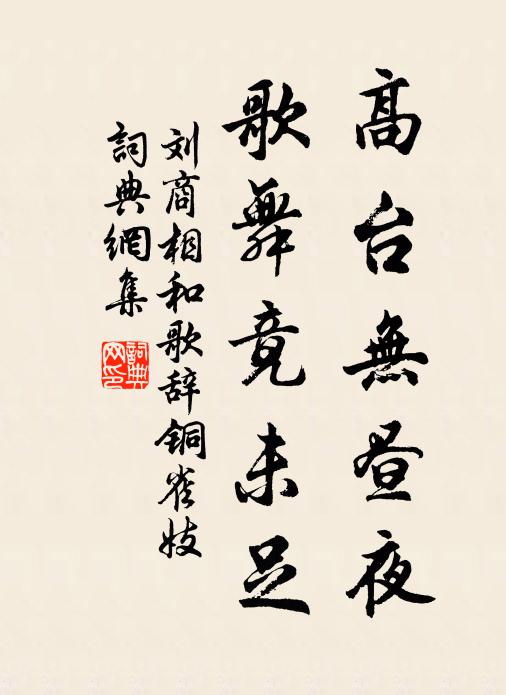 高台無昼夜
歌舞竟未足
刘商相和歌辞铜雀妓
詞典網集
詞典网印